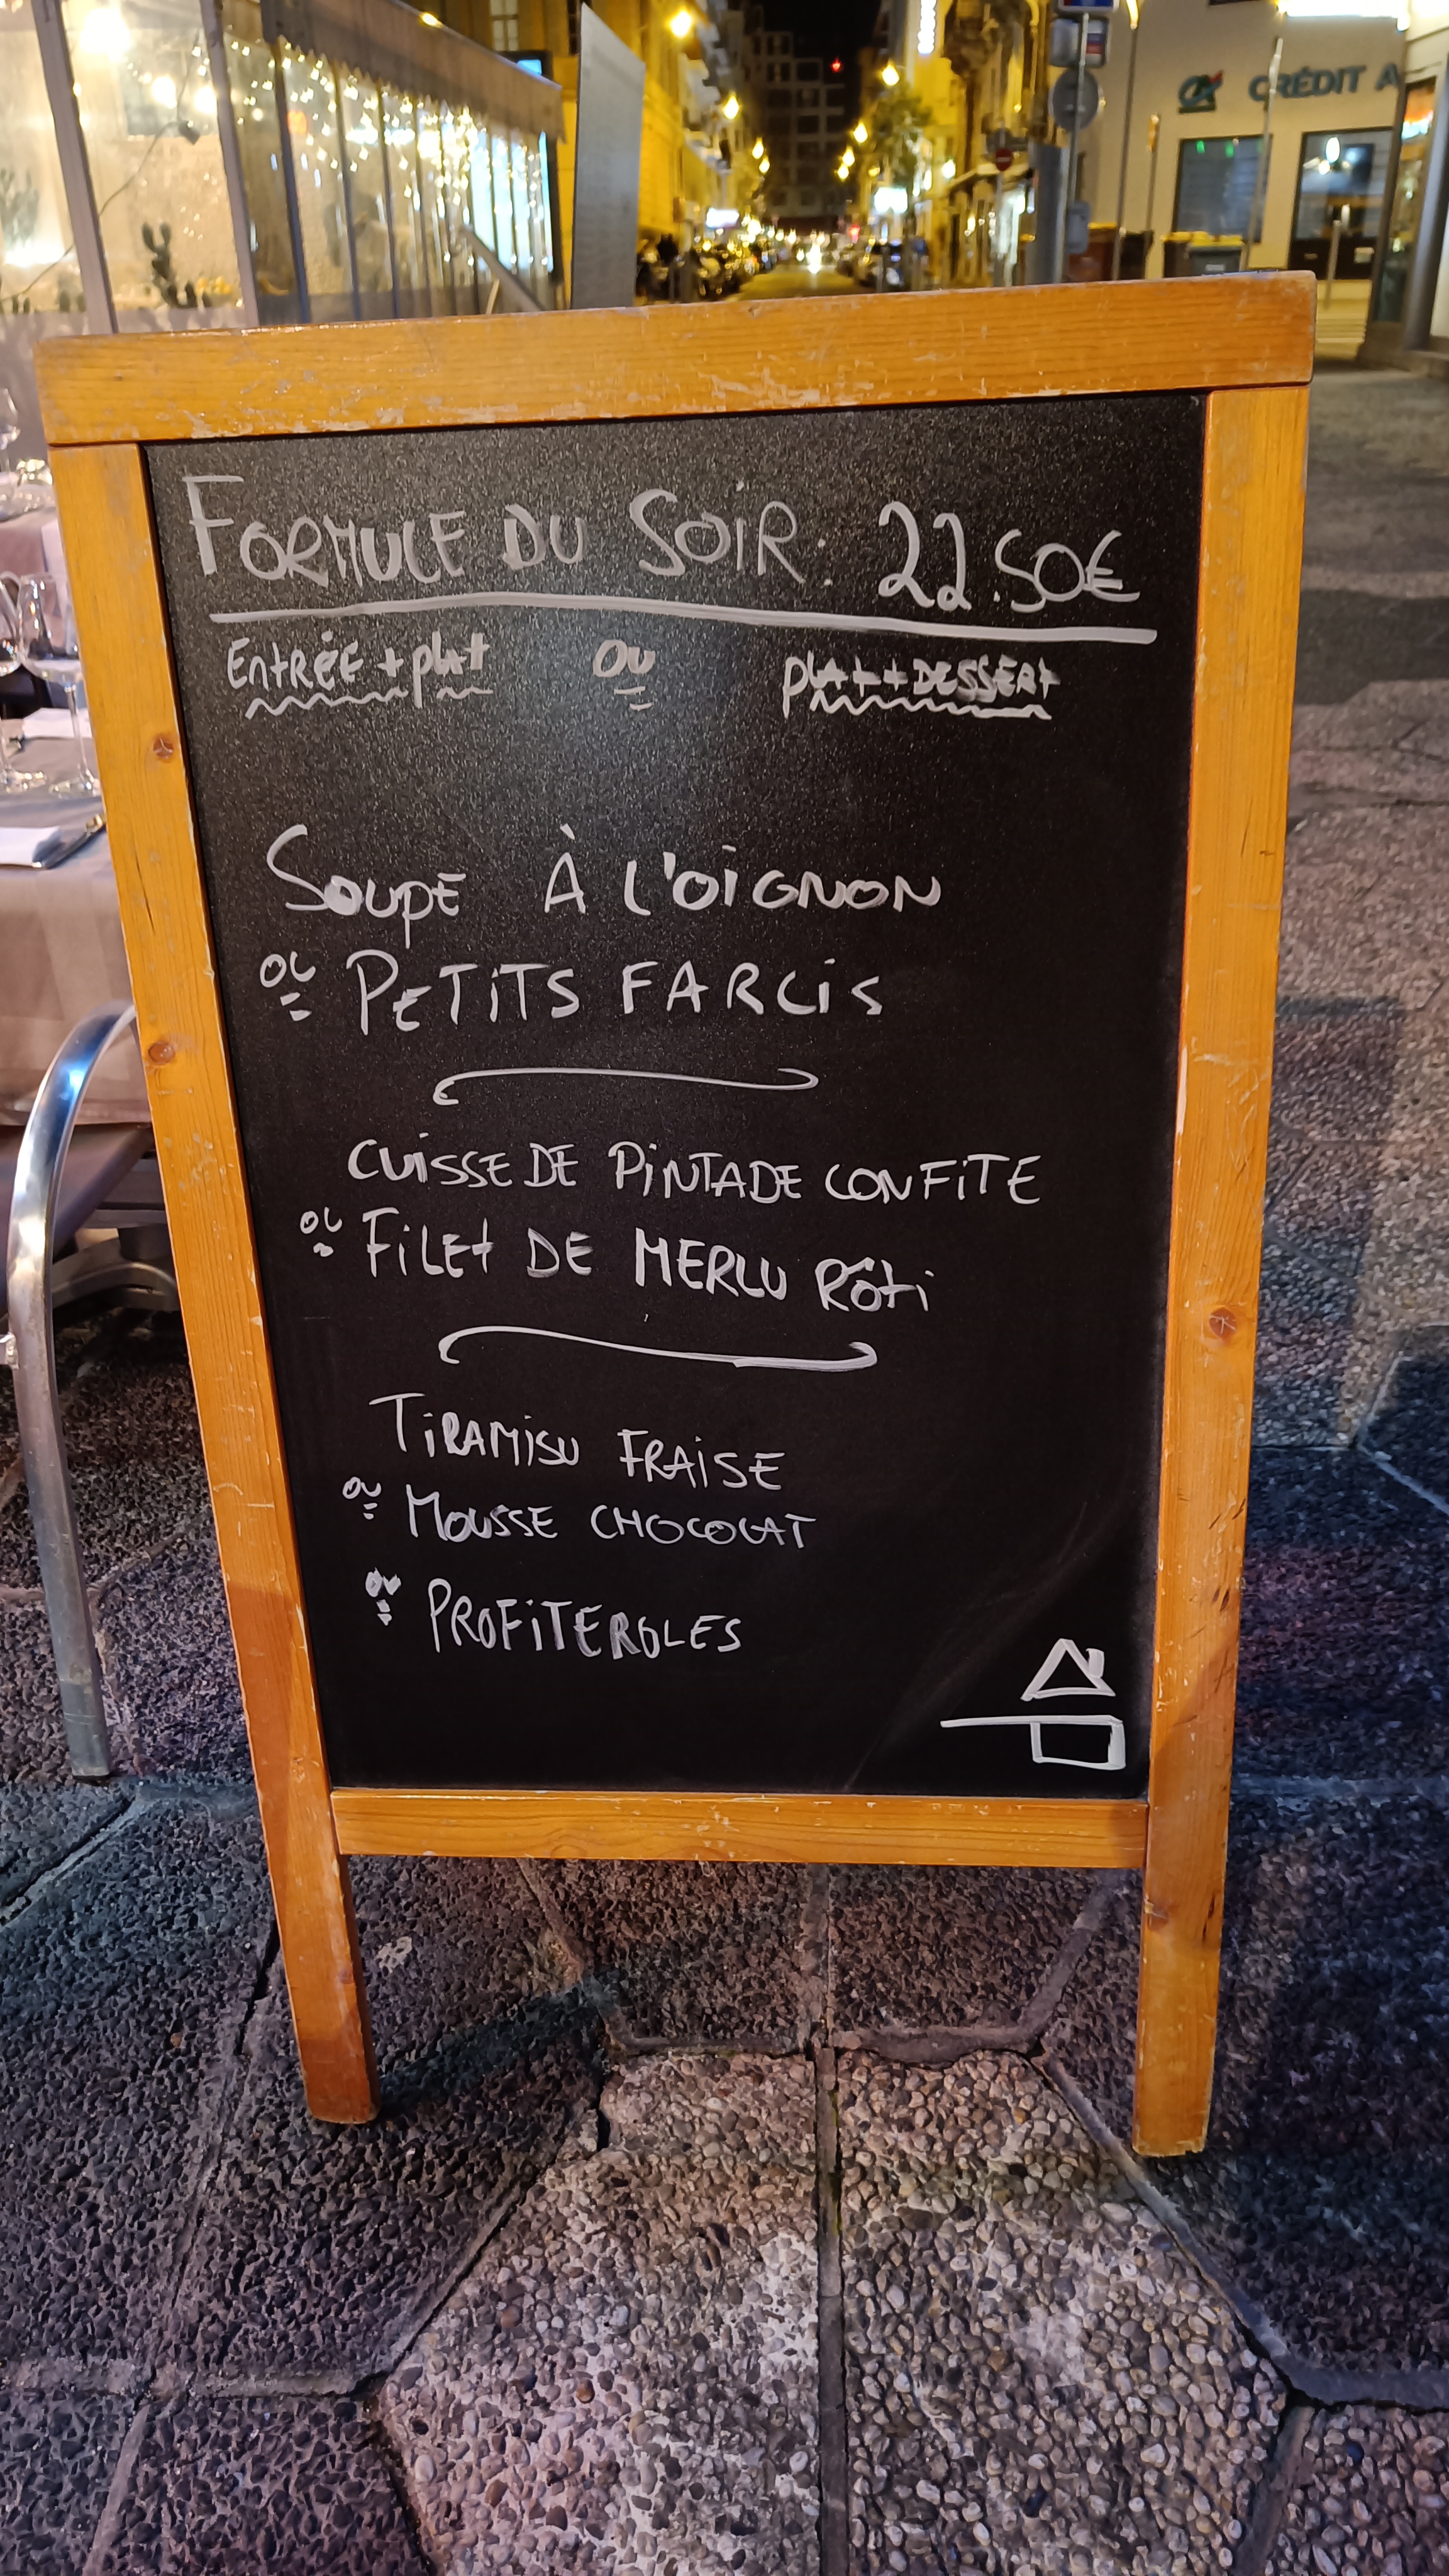 CRÉDIT A
FORMULE DU SOIR: 22.50€
ENTRÉE + plat OU plat + DESSERT
SOUPE À L'OIGNON
OU PETITS FARCIS
CUISSE DE PINTADE CONFITE
OU FILET DE MERLU Rôti
TIRAMISU FRAISE
OU MOUSSE CHOCOLAT
OU PROFITEROLES